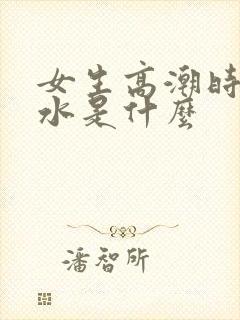 女生高潮時
水是什麼
潘智所